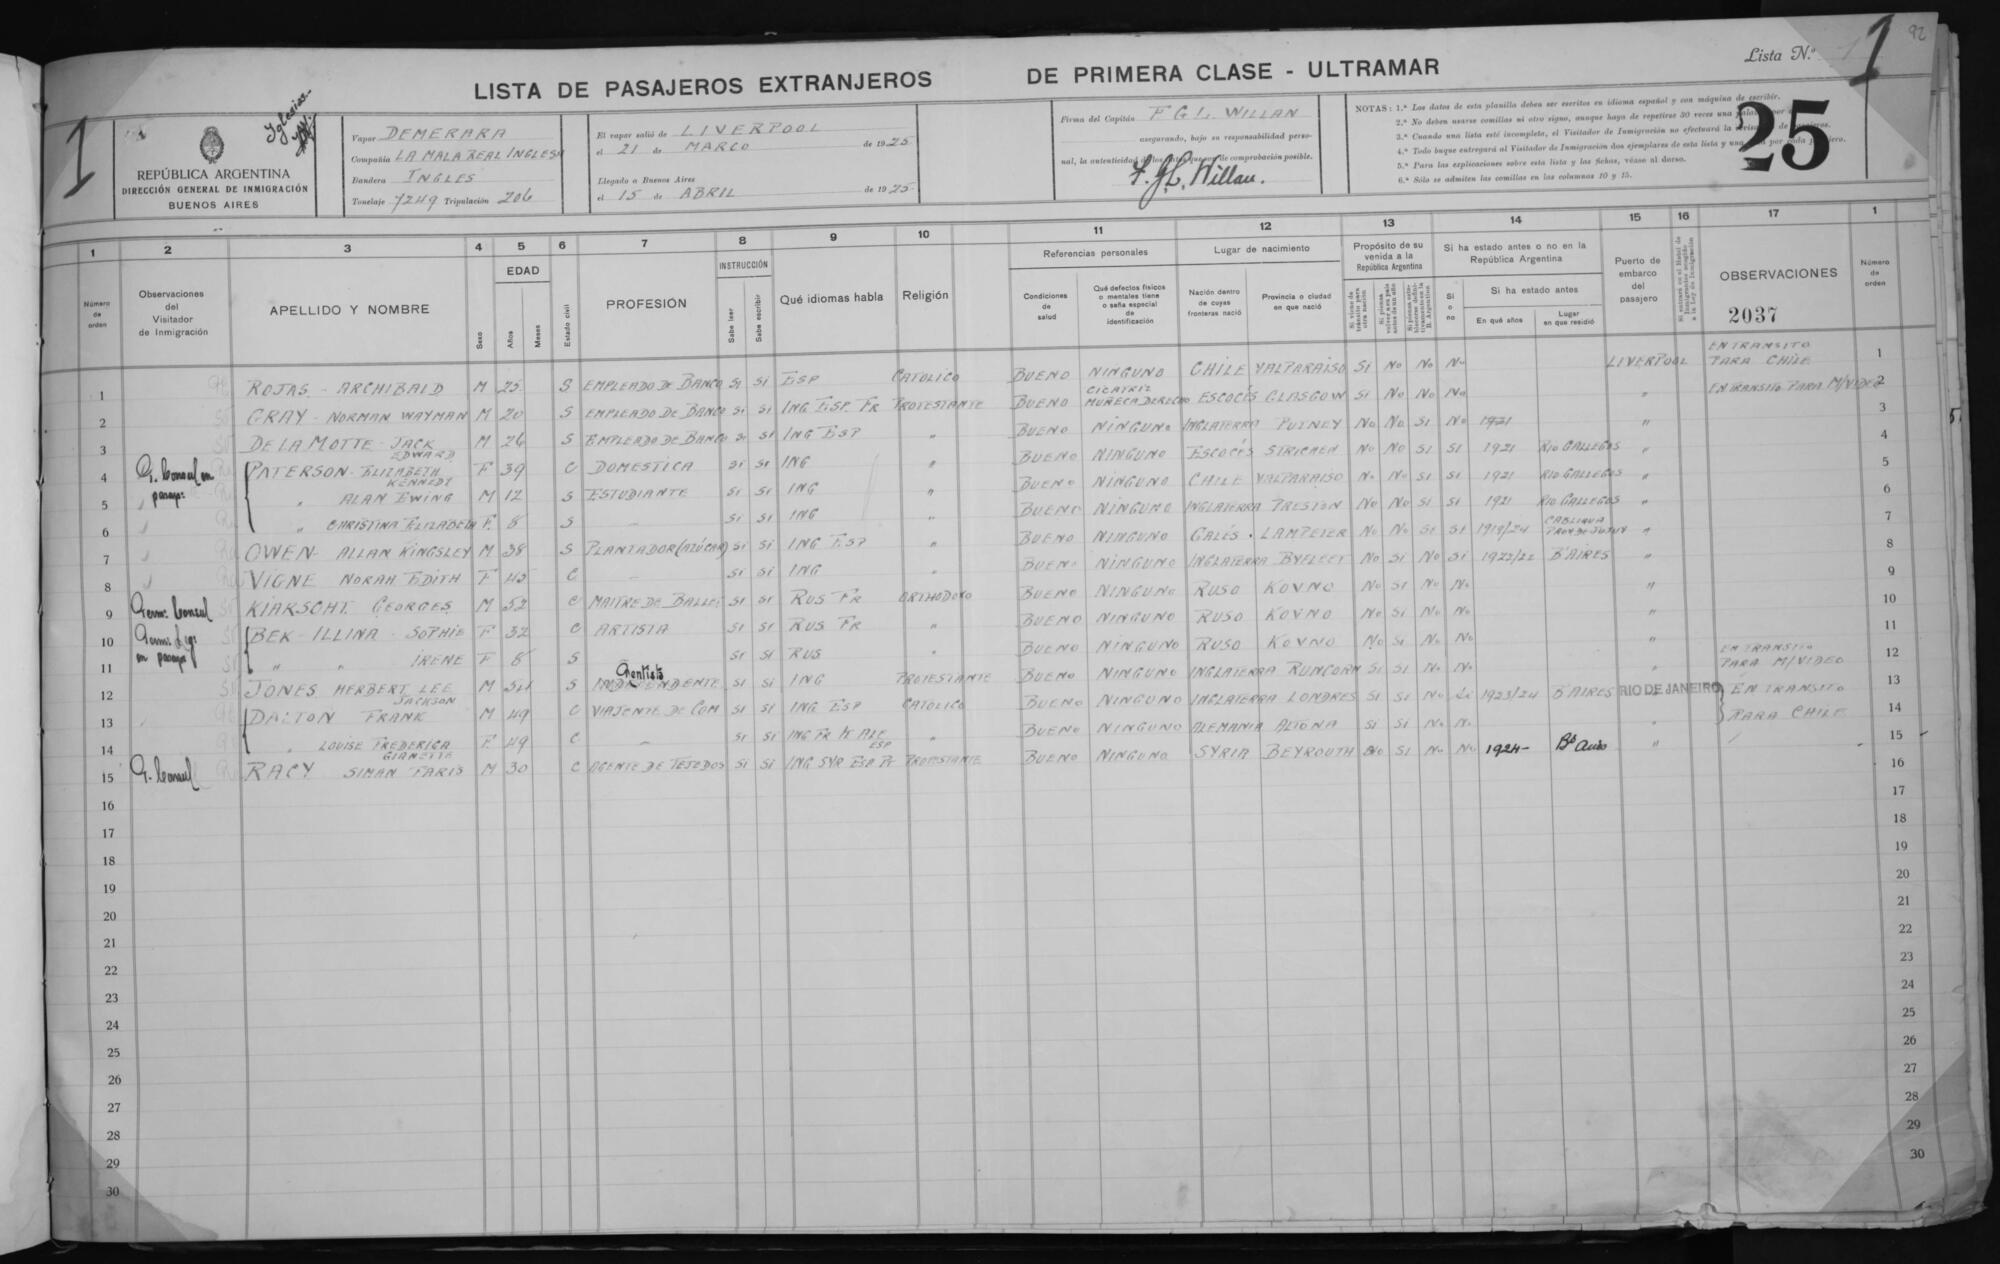 92
Lista N.º 1
1
1
LISTA DE PASAJEROS EXTRANJEROS DE PRIMERA CLASE - ULTRAMAR
25
Iglesias
REPÚBLICA ARGENTINA
DIRECCIÓN GENERAL DE INMIGRACIÓN
BUENOS AIRES
Vapor DEMERARA
Compañia LA MALA REAL INGLESA
Bandera INGLES
Tonelaje 7249 Tripulación 206
El vapor salió de LIVERPOOL
el 21 de MARCO de 1925
Llegado a Buenos Aires
el 15 de ABRIL de 1925
Firma del Capitán F G L WILLAN
asegurando, bajo su responsabilidad personal, la autenticidad de los datos que son de comprobación posible.
F. G. L. Willan.
NOTAS: 1.ª Los datos de esta planilla deben ser escritos en idioma español y con máquina de escribir.
2.ª No deben usarse comillas ni otro signo, aunque haya de repetirse 30 veces una
3.ª Cuando una lista esté incompleta, el Visitador de Inmigración no efectuará la
4.ª Todo buque entregará al Visitador de Inmigración dos ejemplares de esta lista y una
5.ª Para las explicaciones sobre esta lista y las fichas, véase al dorso.
6.ª Sólo se admiten las comillas en las columnas 10 y 15.
1 2 3 4 5 6 7 8 9 10 11 12 13 14 15 16 17 1
Número de orden
Observaciones del Visitador de Inmigración
APELLIDO Y NOMBRE
Sexo
EDAD
Años
Meses
Estado civil
PROFESIÓN
INSTRUCCIÓN
Sabe leer
Sabe escribir
Qué idiomas habla
Religión
Referencias personales
Condiciones de salud
Qué defectos físicos o mentales tiene o seña especial de identificación
Lugar de nacimiento
Nación dentro de cuyas fronteras nació
Provincia o ciudad en que nació
Propósito de su venida a la República Argentina
Si viene de tránsito para otra nación
Si piensa volver a su país antes de un año
Si piensa establecerse definitivamente en la R. Argentina
Si ha estado antes o no en la República Argentina
Si o no
Si ha estado antes
En qué años
Lugar en que residió
Puerto de embarco del pasajero
OBSERVACIONES
2037
Número de orden
1 ROJAS - ARCHIBALD M 25 S EMPLEADO DE BANCO SI SI ESP CATOLICO BUENO NINGUNO CHILE VALPARAISO SI No No No LIVERPOOL EN TRANSITO PARA CHILE 1
2 GRAY - NORMAN WAYMAN M 20 S EMPLEADO DE BANCO SI SI ING ESP FR PROTESTANTE BUENO CICATRIZ MUÑECA DERECHO ESCOCÉS GLASGOW SI No No No " EN TRANSITO PARA M/VIDEO 2
3 DE LA MOTTE - JACK EDWARD M 26 S EMPLEADO DE BANCO SI SI ING ESP " BUENO NINGUNO INGLATERRA PUTNEY No No SI No 1921 " 3
4 G. Consul en pasap: PATERSON - ELIZABETH KENNEDY F 39 C DOMESTICA SI SI ING " BUENO NINGUNO ESCOCÉS STRICHEN No No SI SI 1921 RIO GALLEGOS " 4
5 " " ALAN EWING M 12 S ESTUDIANTE SI SI ING " BUENO NINGUNO CHILE VALPARAISO No No SI SI 1921 RIO GALLEGOS " 5
6 " " CHRISTINA ELIZABETH F 8 S - SI SI ING " BUENO NINGUNO INGLATERRA PRESTON No No SI SI 1921 RIO GALLEGOS " 6
7 " OWEN - ALLAN KINGSLEY M 38 S PLANTADOR (AZÚCAR) SI SI ING ESP " BUENO NINGUNO GALÉS LAMPETER No No SI SI 1919/24 " 7
8 " VIGNE NORAH EDITH F 45 C - SI SI ING " BUENO NINGUNO INGLATERRA BYFLEET No SI No SI 1922/22 B'AIRES " 8
9 Germ. Consul KIAKSCHT GEORGES M 52 C MAITRE DE BALLET SI SI RUS FR ORTHODOXO BUENO NINGUNO RUSO KOVNO No SI No No " 9
10 BEK - ILLINA - SOPHIE F 32 C ARTISTA SI SI RUS FR " BUENO NINGUNO RUSO KOVNO No SI No No " 10
11 " " IRENE F 8 S SI SI RUS BUENO NINGUNO RUSO KOVNO No SI No No " 11
12 JONES HERBERT LEE JACKSON M 54 S Dentista INDEPENDENTE SI SI ING PROTESTANTE BUENO NINGUNO INGLATERRA RUNCORN SI SI No No " EN TRANSITO PARA M/VIDEO 12
13 DALTON FRANK M 49 C VIAJENTE DE COM SI SI ING ESP CATOLICO BUENO NINGUNO INGLATERRA LONDRES SI SI No 1923/24 B'AIRES RIO DE JANEIRO EN TRANSITO PARA CHILE 13
14 " LOUISE FREDERICA GIANETTE F 49 C - SI SI ING FR IT ALE ESP " BUENO NINGUNO ALEMANIA ALTONA SI SI No No " 14
15 G. Consul RACY SIMAN FARIS M 30 C AGENTE DE TEJEDOS SI SI ING SYR ESP PT PROTESTANTE BUENO NINGUNO SYRIA BEYROUTH No SI No No 1924 - Bs Aires " 15
16 16
17 17
18 18
19 19
20 20
21 21
22 22
23 23
24 24
25 25
26 26
27 27
28 28
29 29
30 30